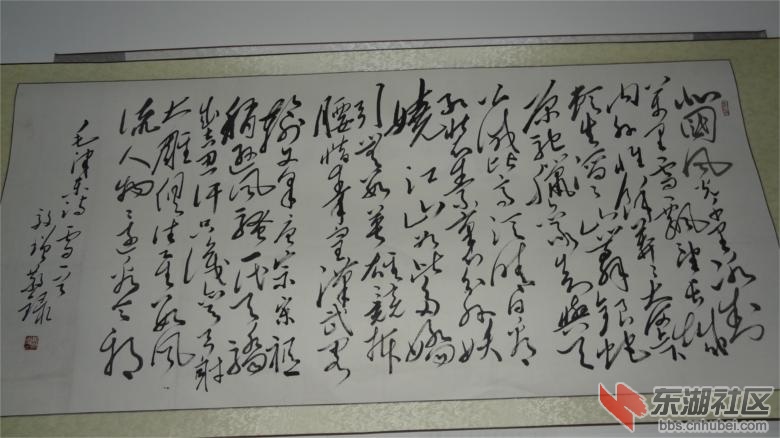 北国风光千里冰封
万里雪飘望长城
内外惟余莽莽大河上下
顿失滔滔山舞银蛇
原驰腊象欲与天
公试比高须晴日看
红装素裹分外妖
娆 江山如此多娇
引无数英雄竞折
腰惜秦皇汉武略
输文采唐宗宋祖
稍逊风骚一代天骄
成吉思汗只识弯弓射
大雕俱往矣数风
流人物还看今朝
毛泽东诗雪一首
东湖社区
bbs.cnhubei.com